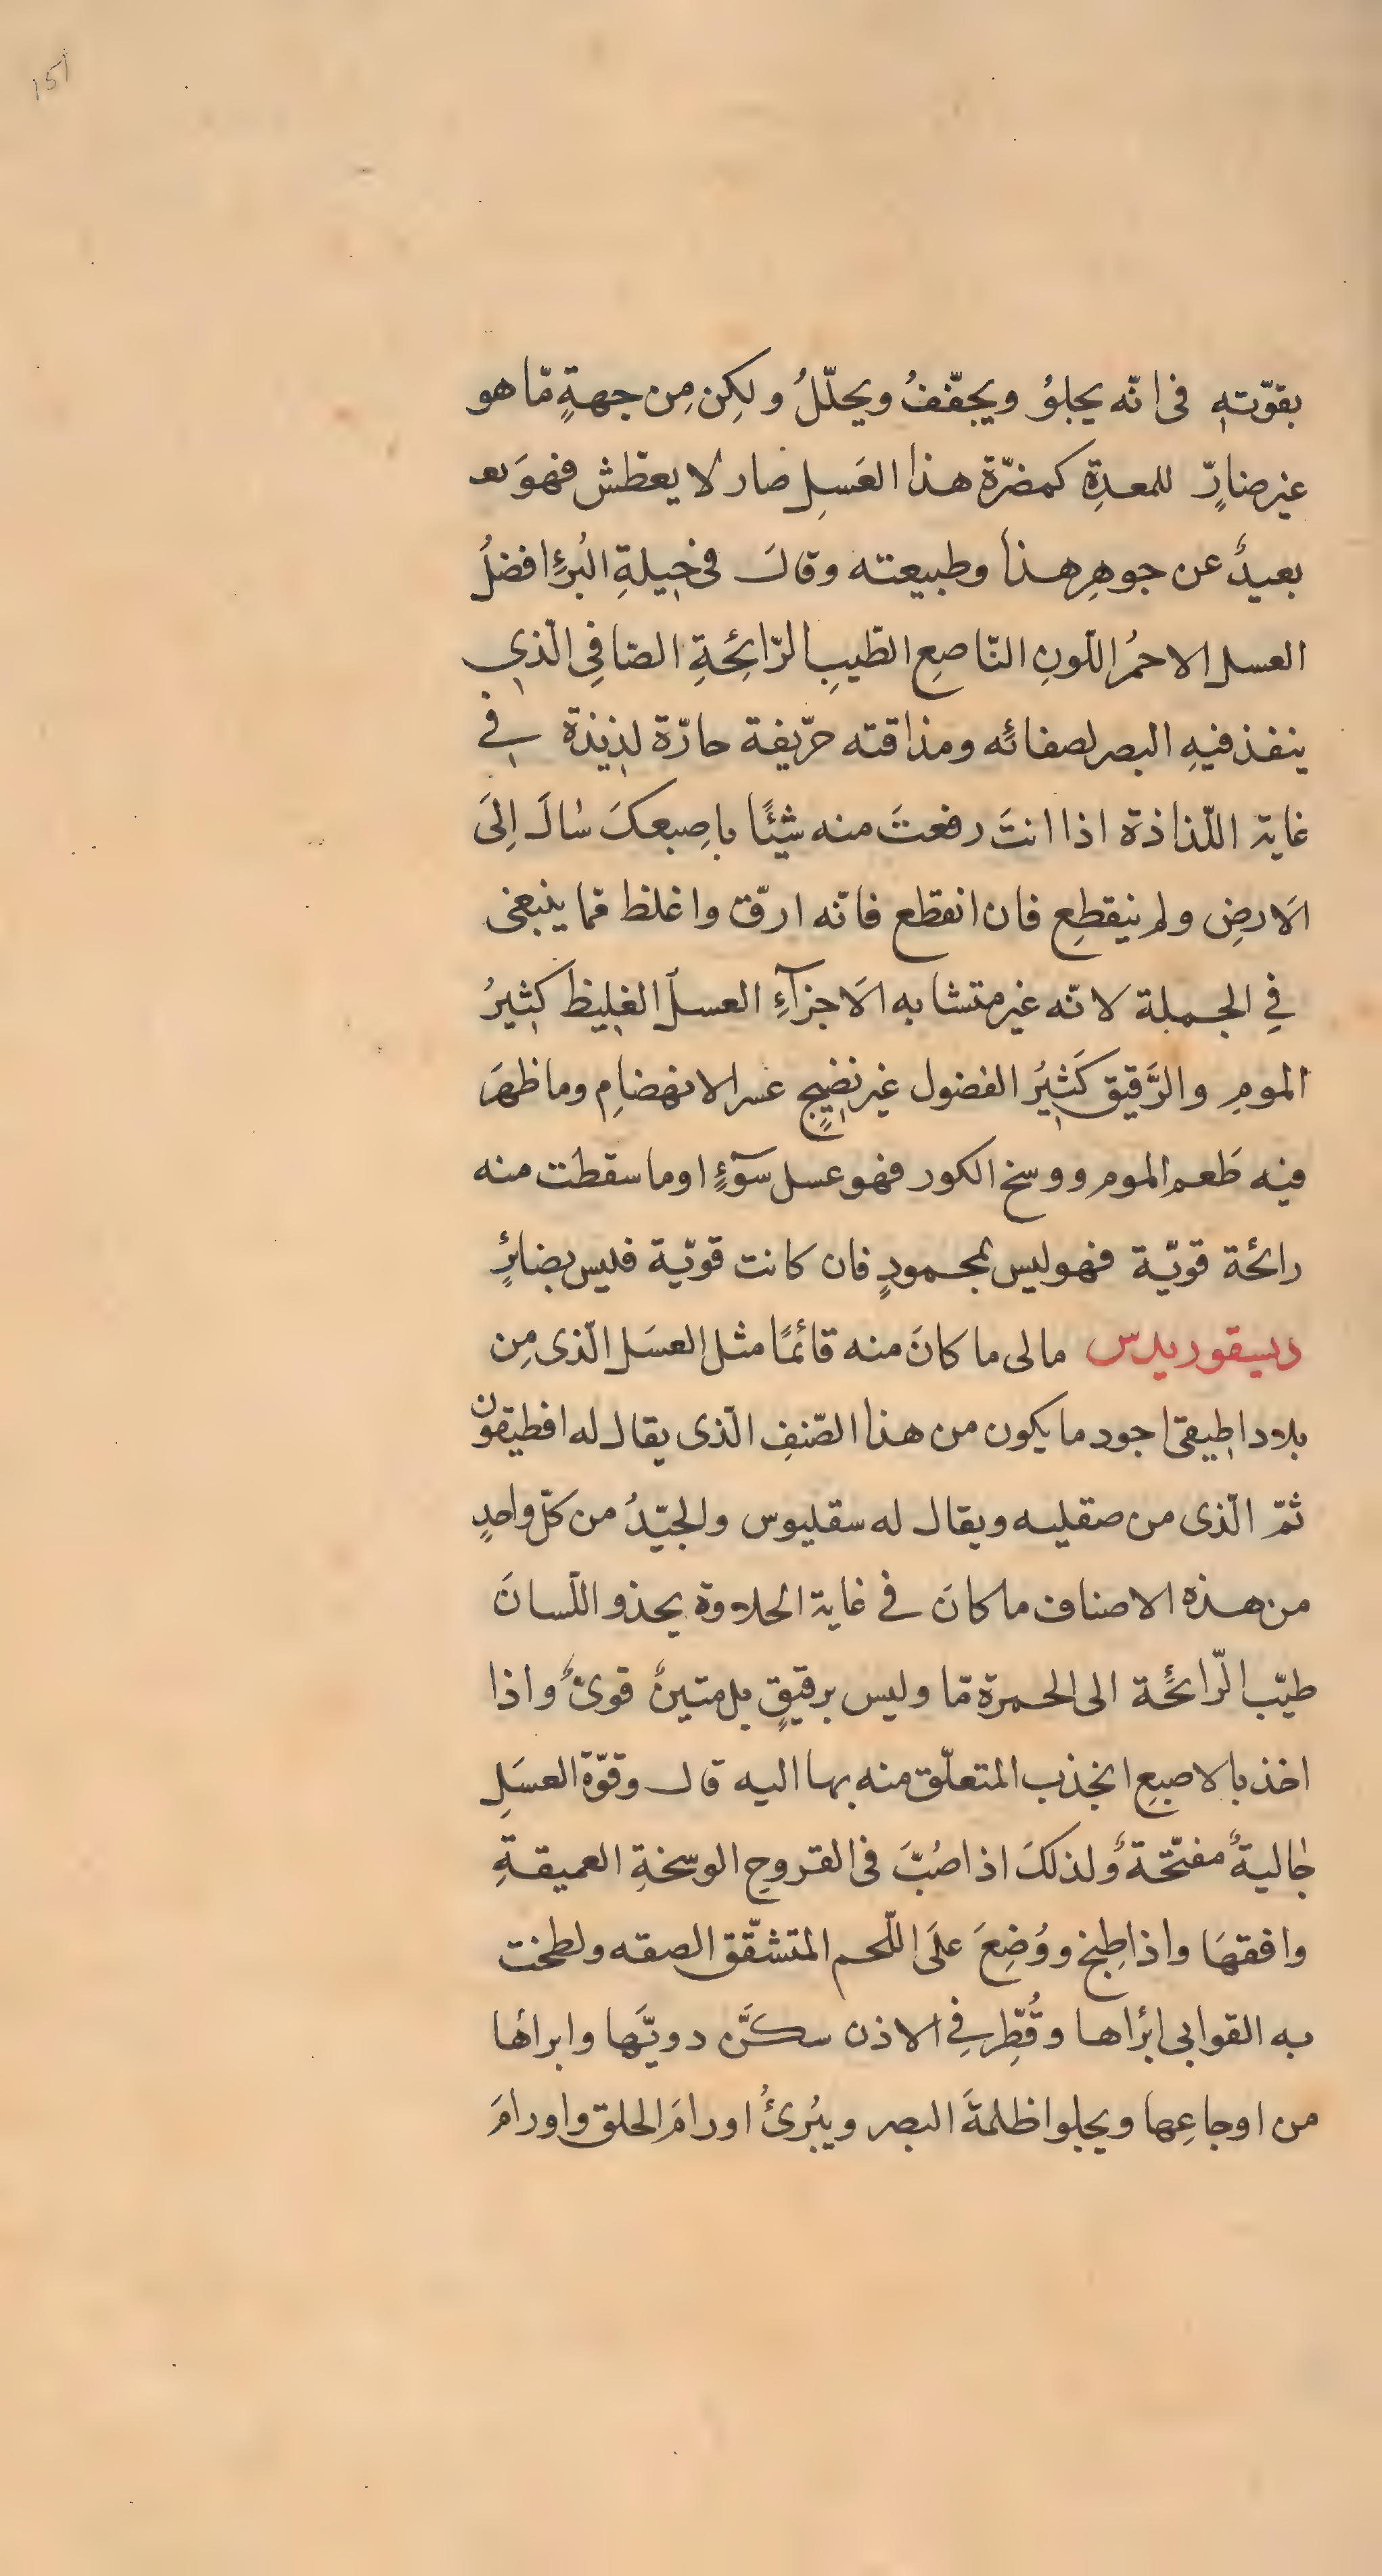 151
بقوّتهِ فى انّه يجلوُ ويجفّفُ ويحلّلُ ولكِن مِن جهةٍ مّا هو
غير ضارٍّ للمعدِةِ كمضرّة هذا العَسِلِ صار لا يعطّش فهوَ بعـ
بعيدٌ عن جوهرِ هذا وطبيعته وقالَ فى حِيلةِ البُرءِ افضلُ
العسل الاحمُر اللّونِ النّاصعِ الطّيبِ الرّائحَةِ الصّافِى الّذي
ينفذ فيهِ البصر لصفائه ومذاقته حرّيفة حارّة لذيذة في
غاية اللّذاذة اذا انتَ رفعتَ منه شيئًا باِصبعكَ سٰالَ اِلَى
الَارضِ ولم ينقطِع فان انقطع فانّه ارقّ واغلظ ممّا ينبغى
فِي الجملة لانّه غير متشابه الَاجزآءِ العسلُ الغليظ كثيرُ
المومِ والرَّقيق كَثيرُ الفضول غير نضيجٍ عسر الانهضامِ وما ظهرَ
فيه طَعم الموم ووسخ الكور فهو عسل سَوءٍ او ما سقطت منه
رائحة قويّة فهو ليس بمحمودٍ فان كانت قويّة فليس بضائرٍ
ديسقوريدس مالى ما كانَ منه قائمًا مثل العسَل الّذى مِن
بلاد اطيقى اجود ما يكون من هذا الصّنفِ الّذى يقال له افطيقون
ثمّ الّذى من صقليه ويقال له سقليوس والجيّدُ من كلّ واحدٍ
من هذه الاصناف ما كانَ فى غاية الحلاوة يحذو اللّسانَ
طيّب الرّائحة الى الحمرة مّا وليس برقيقٍ بل متينٌ قوىٌّ واذا
اخذ بالاصبعِ انجذب المتعلّق منه بها اليه قال وقوّة العسَلِ
جٰاليةٌ مفتّحةٌ ولذلكَ اذا صُبَّ فى القروحِ الوسخةِ العميقةِ
وافقهَا واذا طِبخ ووُضِعَ علَى اللّحم المتشقّق الصقه ولطخت
به القوابى ابرٔاها وقُطِّر فِي الاذن سكَّن دويَّها وابراها
من اوجاعِها ويجلوا ظلمةَ البصر ويبُرىُٔ اورامَ الحلق واورامَ